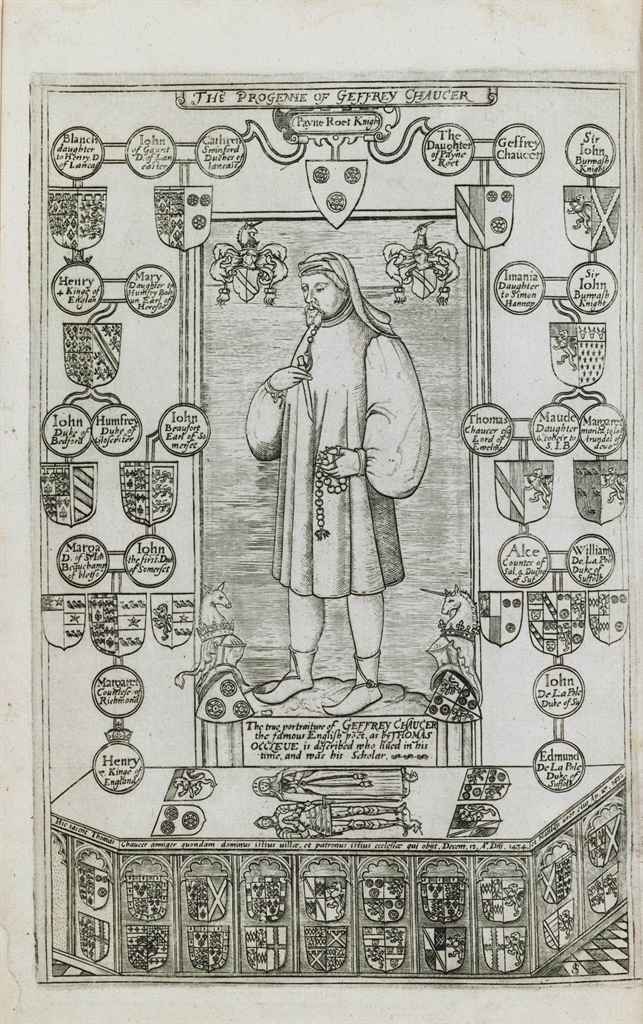 THE PROGENIE OF GEFFREY CHAUCER
Payne Roet Knight
Blanch
daughter
to Henry D
of Lanca
Iohn
of Gaunt
D. of Lan
caster
Cathren
Swinford
Duches of
lancast
The
Daughter
of Payne
Roet
Geffrey
Chaucer
Sir
Iohn
Burwash
Knight
Henry
4 Kinge of
Englan
Mary
Daughter to
Humfrey Boh
un Earl of
Ismania
Daughter
to Simon
Hannap
Sir
Iohn
Burwash
Knight
Iohn
Duke of
Bedford
Humfrey
Duke of
Glocester
Iohn
Beaufort
Earl of So
merset
Thomas
Chaucer esq
Lord of
Ewelme
Maude
Daughter
& coheir to
S. I. B
Margaret
Marga
D. of Sr Ioh
Beauchamp
of bletso
Iohn
the first Du
of Somerset
Alce
Countes of
Sal. & Duches
of Suf
William
De La Pole
Duke of
Suffolk
Margaret
Countesse of
Richmond
Iohn
De La Pole
Duke of Su
Henry
7 Kinge of
England
Edmund
De La Pole
Duke of
Suffolk
The true portraiture of GEFFREY CHAUCER
the famous English poet, as by THOMAS
OCCLEUE is described who liued in his
time, and was his Scholar.
Hic iacent Thomas Chaucer armiger quondam dominus istius villæ, et patronus istius ecclesiæ qui obijt